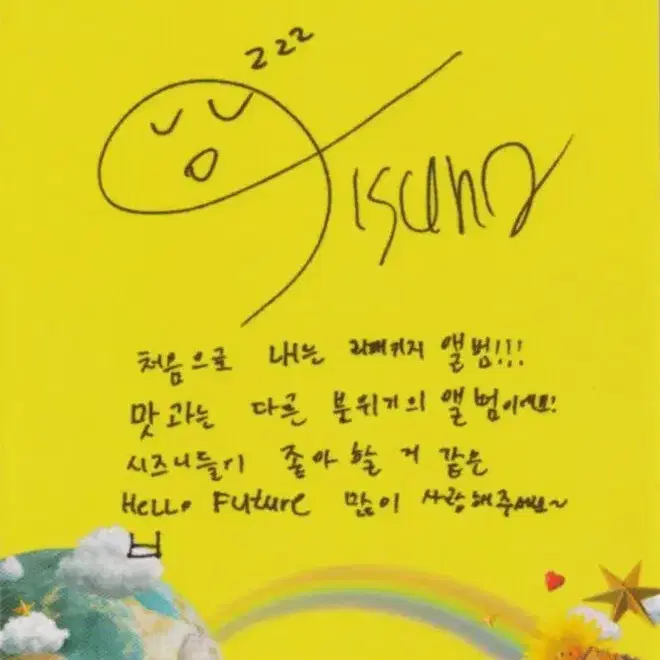 zzz
Jisung
처음으로 내는 리패키지 앨범!!!
맛과는 다른 분위기의 앨범이에요!
시즈니들이 좋아할 거 같은
Hello Future 많이 사랑해주세요~